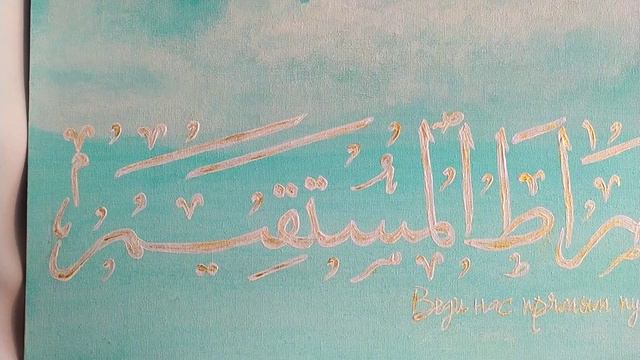 ـراط المستقيم
Веди нас прямым пу